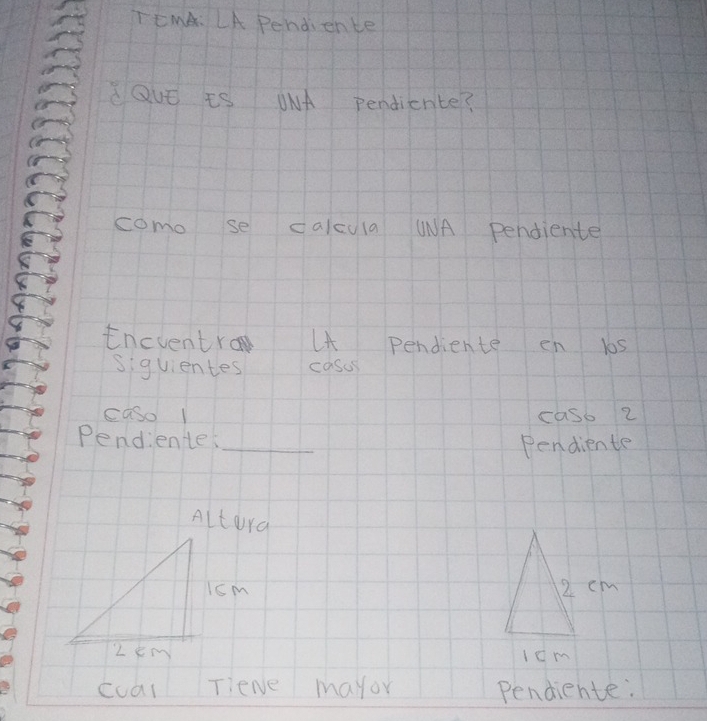 TEMA: LA Pendiente
¿QUE ES UNA pendiente?
como se calcula UNA pendiente
Encuentra LA pendiente en los
siguientes casos
caso 1
Pendiente: ______
caso 2
Pendiente
ALtura
1cm
2 cm
2 cm
1cm
cual TIENE mayor pendiente: